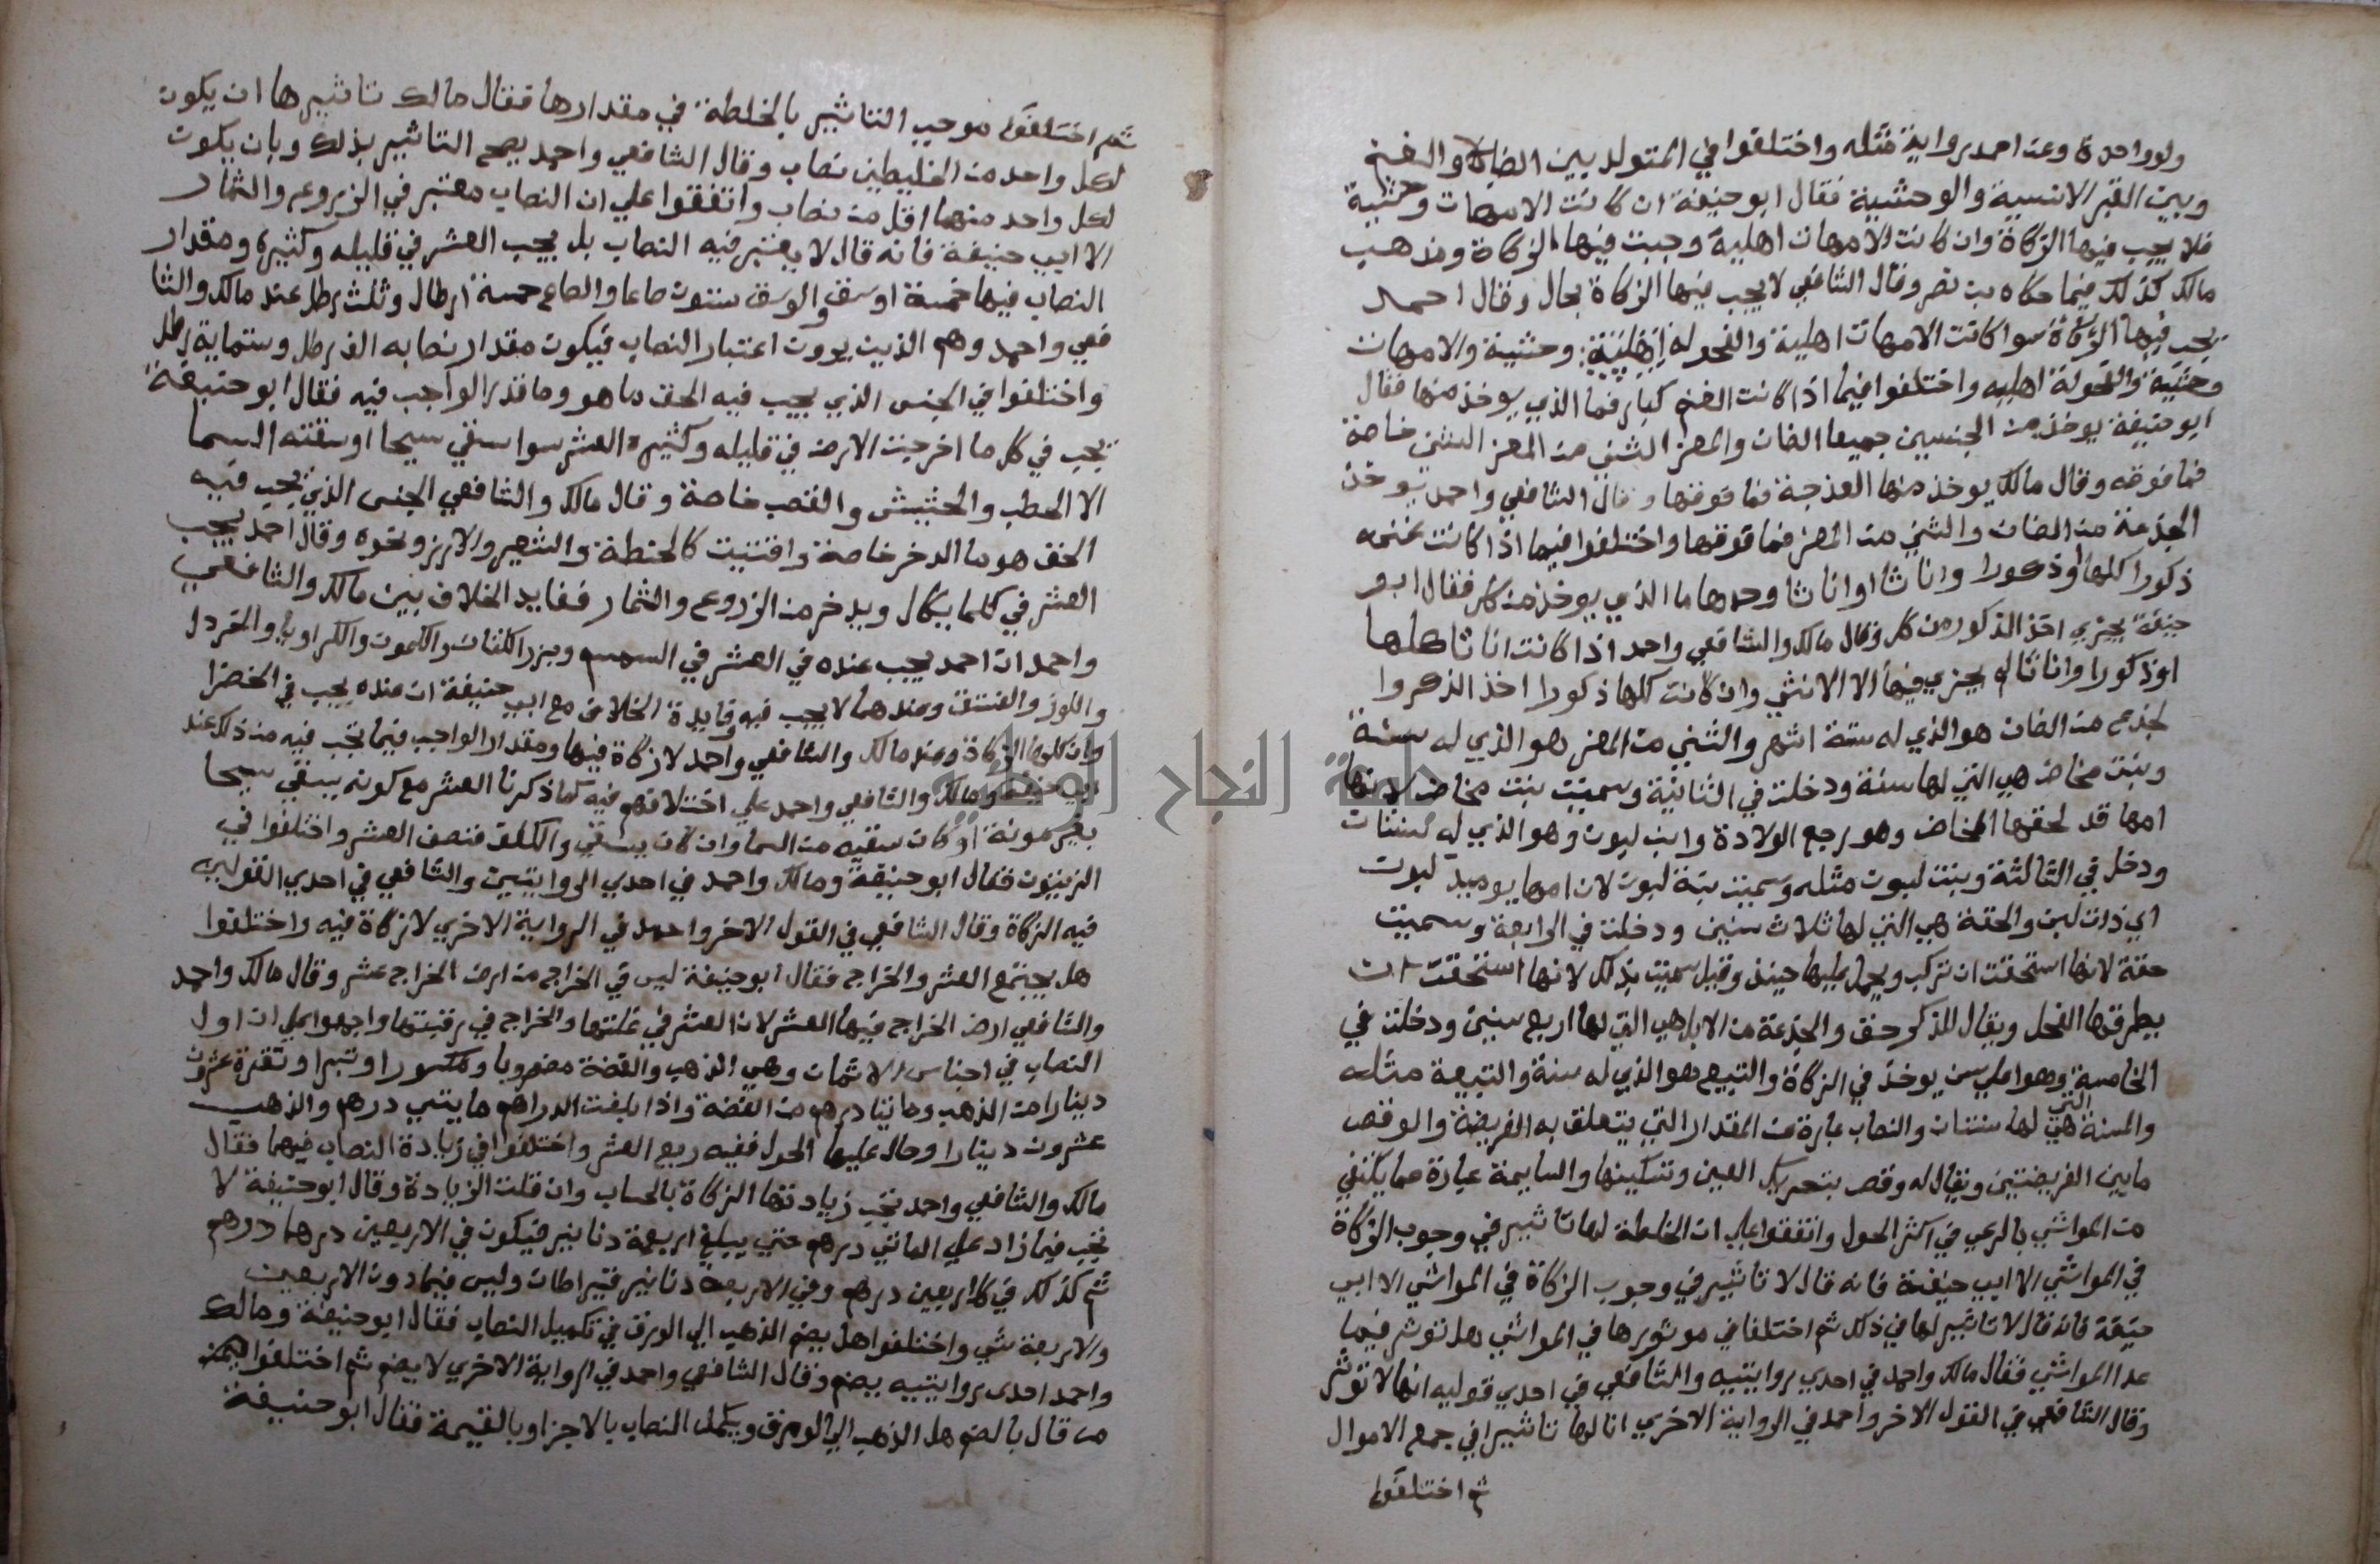 ولو واحدة وعن احمد رواية مثله واختلفوا في المتولد بين الضبا والغنم
وبين البقر الانسية والوحشية فقال ابو حنيفة ان كانت الامهات وحشية
فلا يجب فيها الزكاة وان كانت الامهات اهلية وجبت فيها الزكاة ومذهب
مالك كذلك فيما حكاه بن نصر وقال الشافعي لا يجب فيها الزكاة بحال وقال احمد
يجب فيها الزكاة سوا كانت الامهات اهلية والفحولة وحشية والامهات
وحشية والفحولة اهليه واختلفوا فيما اذا كانت الغنم كبار فما الذي يوخذ منها فقال
ابو حنيفة يوخذ من الجنسين جميعا الضان والمعز الثني من المعز الثني خاصة
فما فوقه وقال مالك يوخذ منها الجذعة فما فوقها وقال الشافعي واحمد يوخذ
الجذعة من الضان والثني من المعز فما فوقها واختلفوا فيما اذا كانت غنمه
ذكورا كلها او ذكورا واناثا او اناثا وحدها ما الذي يوخذ من كل فقال ابو
حنيفة يجزي اخذ الذكور من كل وقال مالك والشافعي واحمد اذا كانت اناثا كلها
او ذكورا واناثا لم يجزي فيها الا الانثي وان كانت كلها ذكورا اخذ الذكر وا
لجذع من الضان هو الذي له ستة اشهر والثني من المعز هو الذي له سنة
وبنت مخاض هي التي لها سنة ودخلت في الثانية وسميت بنت مخاض لانها
امها قد لحقها المخاض وهو رجع الولادة وابن لبون وهو الذي له سنتان
ودخل في الثالثة وبنت لبون مثله وسميت بنة لبون لان امها يوميد لبون
اي ذات لبن والحقة هي التي لها ثلاث سنين ودخلت في الرابعة وسميت
حقة لانها استحقت ان تركب ويحمل عليها حينذ وقيل سميت بذلك لانها استحقت ان
يطرقها الفحل ويقال للذكر حق والجذعة من الابل هي التي لها اربع سنين ودخلت في
الخامسة وهو اعلي سن يوخذ في الزكاة والتبيع هو الذي له سنة والتبيعة مثله
والمسنة هي التي لها سنتان والنصاب عبارة عن المقدار التي يتعلق به الفريضة والوقص
ما بين الفريضتين ويقال له وقص بتحريك العين وتسكينها والسايمة عبارة عما يكتفي
من المواشي بالرعي في اكثر الحول واتفقوا علي ان الخلطة لها تاثير في وجوب الزكاة
في المواشي الا ابي حنيفة فانه قال لا تاثير في وجوب الزكاة في المواشي الا ابي
حنيفة فانه قال لا تاثير لها في ذلك ثم اختلفا في موثورها في المواشي هل تؤثر فيما
عدا المواشي فقال مالك واحمد في احدي روايتيه والشافعي في احدي قوليه انها لا توثر
وقال الشافعي في القول الاخر واحمد في الرواية الاخري انا لها تاثيرا في جمع الاموال
ثم اختلفوا
ثم اختلفوا موجب التاثير بالخلطة في مقدارها فقال مالك تاثيرها ان يكون
لكل واحد من الخليطين نصاب وقال الشافعي واحمد يصح التاثير بذلك وبان يكون
لكل واحد منهما اقل من نصاب واتفقوا علي ان النصاب معتبر في الزروع والثمار
الا ابي حنيفة فانه قال لا يعتبر فيه النصاب بل يجب العشر في قليله وكثيره ومقدار
النصاب فيها خمسة اوسق والوسق ستون صاعا والصاع خمسة ارطال وثلث رطل عند مالك والشا
فعي واحمد وهم الذين يرون اعتبار النصاب فيكون مقدار نصابه الف رطل وستماية رطل
واختلفوا في الجنس الذي يجب فيه الحق ما هو وما قدر الواجب فيه فقال ابو حنيفة
يجب في كل ما اخرجت الارض في قليله وكثيره العشر سوا سقي سيحا او سقته السما
الا الحطب والحشيش والقصب خاصة وقال مالك والشافعي الجنس الذي يجب فيه
الحق هو ما الدخر خاصة واقتنيت كالحنطة والشعير والارز ونحوه وقال احمد يجب
العشر في كلما يكال ويدخر من الزروع والثمار ففايد الخلاف بين مالك والشافعي
واحمد ان احمد يجب عنده في العشر في السمسم وبزر الكتان والكمون والكراويا والخردل
واللوز والفستق وعندهما لا يجب فيه وفايدة الخلاف مع ابي حنيفة ان عنده يجب في الخضرا
وان كلها الزكاة وعند مالك والشافعي واحمد لا زكاة فيها ومقدار الواجب فيما تجب فيه من ذلك عند
ابي حنيفة ومالك والشافعي واحمد علي اختلافهم فيه كما ذكرنا العشر مع كونه يسقي سيحا
بغير مونة او كان سقيه من السما وان كان يسقي والكلف فنصف العشر واختلفوا في
الزيتون فقال ابو حنيفة ومالك واحمد في احدي الروايتين والشافعي في احدي القولين
فيه الزكاة وقال الشافعي في القول الاخر واحمد في الرواية الاخري لا زكاة فيه واختلفوا
هل يجتمع العشر والخراج فقال ابو حنيفة ليس في الخراج من ارض الخراج عشر وقال مالك واحمد
والشافعي ارض الخراج فيها العشر لان العشر في غلتها والخراج في رقبتها واجمعوا علي ان اول
النصاب في اجناس الاثمان وهي الذهب والفضة مضروبا ومكسورا وتبرا ونقرة عشرون
دينارا من الذهب ومايتا درهم من الفضة واذا بلغت الدراهم مايتي درهم والذهب
عشرون دينارا وحال عليها الحول ففيه ربع العشر واختلفوا في زيادة النصاب فيهما فقال
مالك والشافعي واحمد تجب زيادتها الزكاة بالحساب وان قلت الزيادة وقال ابو حنيفة لا
تجب فيما زاد علي المائتي درهم حتي يبلغ اربعة دنانير فيكون في الاربعين درهما درهم
ثم كذلك في كل اربعين درهم وفي الاربعة دنانير قيراطان وليس فيما دون الاربعين
والاربعة شي واختلفوا هل يضم الذهب الي الورق في تكميل النصاب فقال ابو حنيفة ومالك
واحمد احدى روايتيه يضم وقال الشافعي واحمد في الرواية الاخري لا يضم ثم اختلفوا
من قال بالضم هل الذهب الي الورق ويكمل النصاب بالاجزا وبالقيمة فقال ابو حنيفة